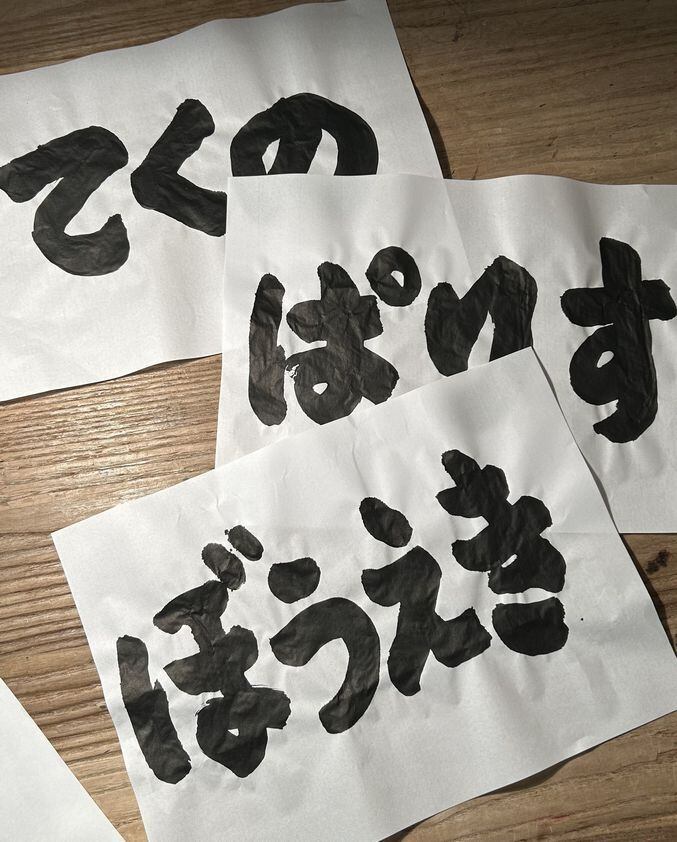 てくの
ぱりす
ぼうえき